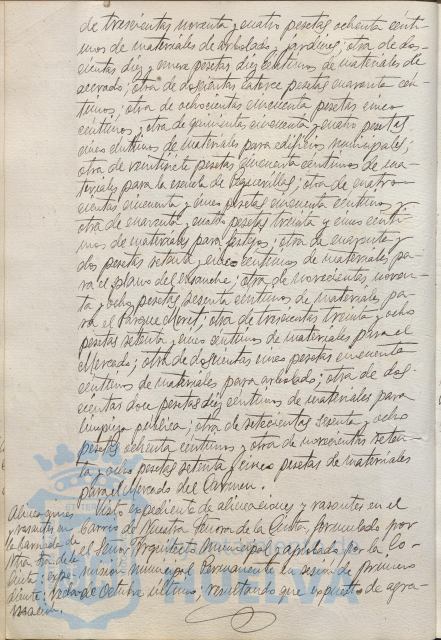 de trescientas noventa y cuatro pesetas ochenta cénti-
mos de materiales de arbolado y jardines; otra de dos-
cientas diez y nueve pesetas diez céntimos de materiales de
acerado; otra de doscientas catorce pesetas cuarenta cén-
timos; otra de ochocientas cincuenta pesetas cinco
céntimos; otra de quinientas cincuenta y cuatro pesetas
cinco céntimos de materiales para edificios municipales;
otra de veintisiete pesetas cincuenta céntimos de ma-
teriales para la escuela de; otra de cuatro-
cientas cincuenta y cinco pesetas cincuenta céntimos y
otra de cuarenta y cuatro pesetas treinta y cinco cénti-
mos de materiales para festejos; otra de cuarenta y
dos pesetas setenta y cinco céntimos de materiales pa-
ra el plano del ensanche; otra de novecientas noven-
ta y ocho pesetas sesenta céntimos de materiales pa-
ra el Parque Moret; otra de trescientas treinta y ocho
pesetas setenta y cinco céntimos de materiales para el
Mercado; otra de doscientas cinco pesetas cincuenta
céntimos de materiales para arbolado; otra de dos-
cientas doce pesetas diez céntimos de materiales para
limpieza pública; otra de setecientas sesenta y ocho
pesetas ochenta céntimos y otra de novecientas seten-
ta y ocho pesetas setenta y cinco pesetas de materiales
para el Mercado del Carmen.
Alineaciones
y rasantes en
la barriada de
Ntra. Sra. de la
Cinta; expe-
diente; redac-
Visto expediente de alineaciones y rasantes en el
barrio de Nuestra Señora de la Cinta, formulado por
el Señor Arquitecto Municipal y aprobado por la Co-
misión municipal Permanente en sesión de primero
de Octubre último; resultando que expuesto de agra-
HUELVA